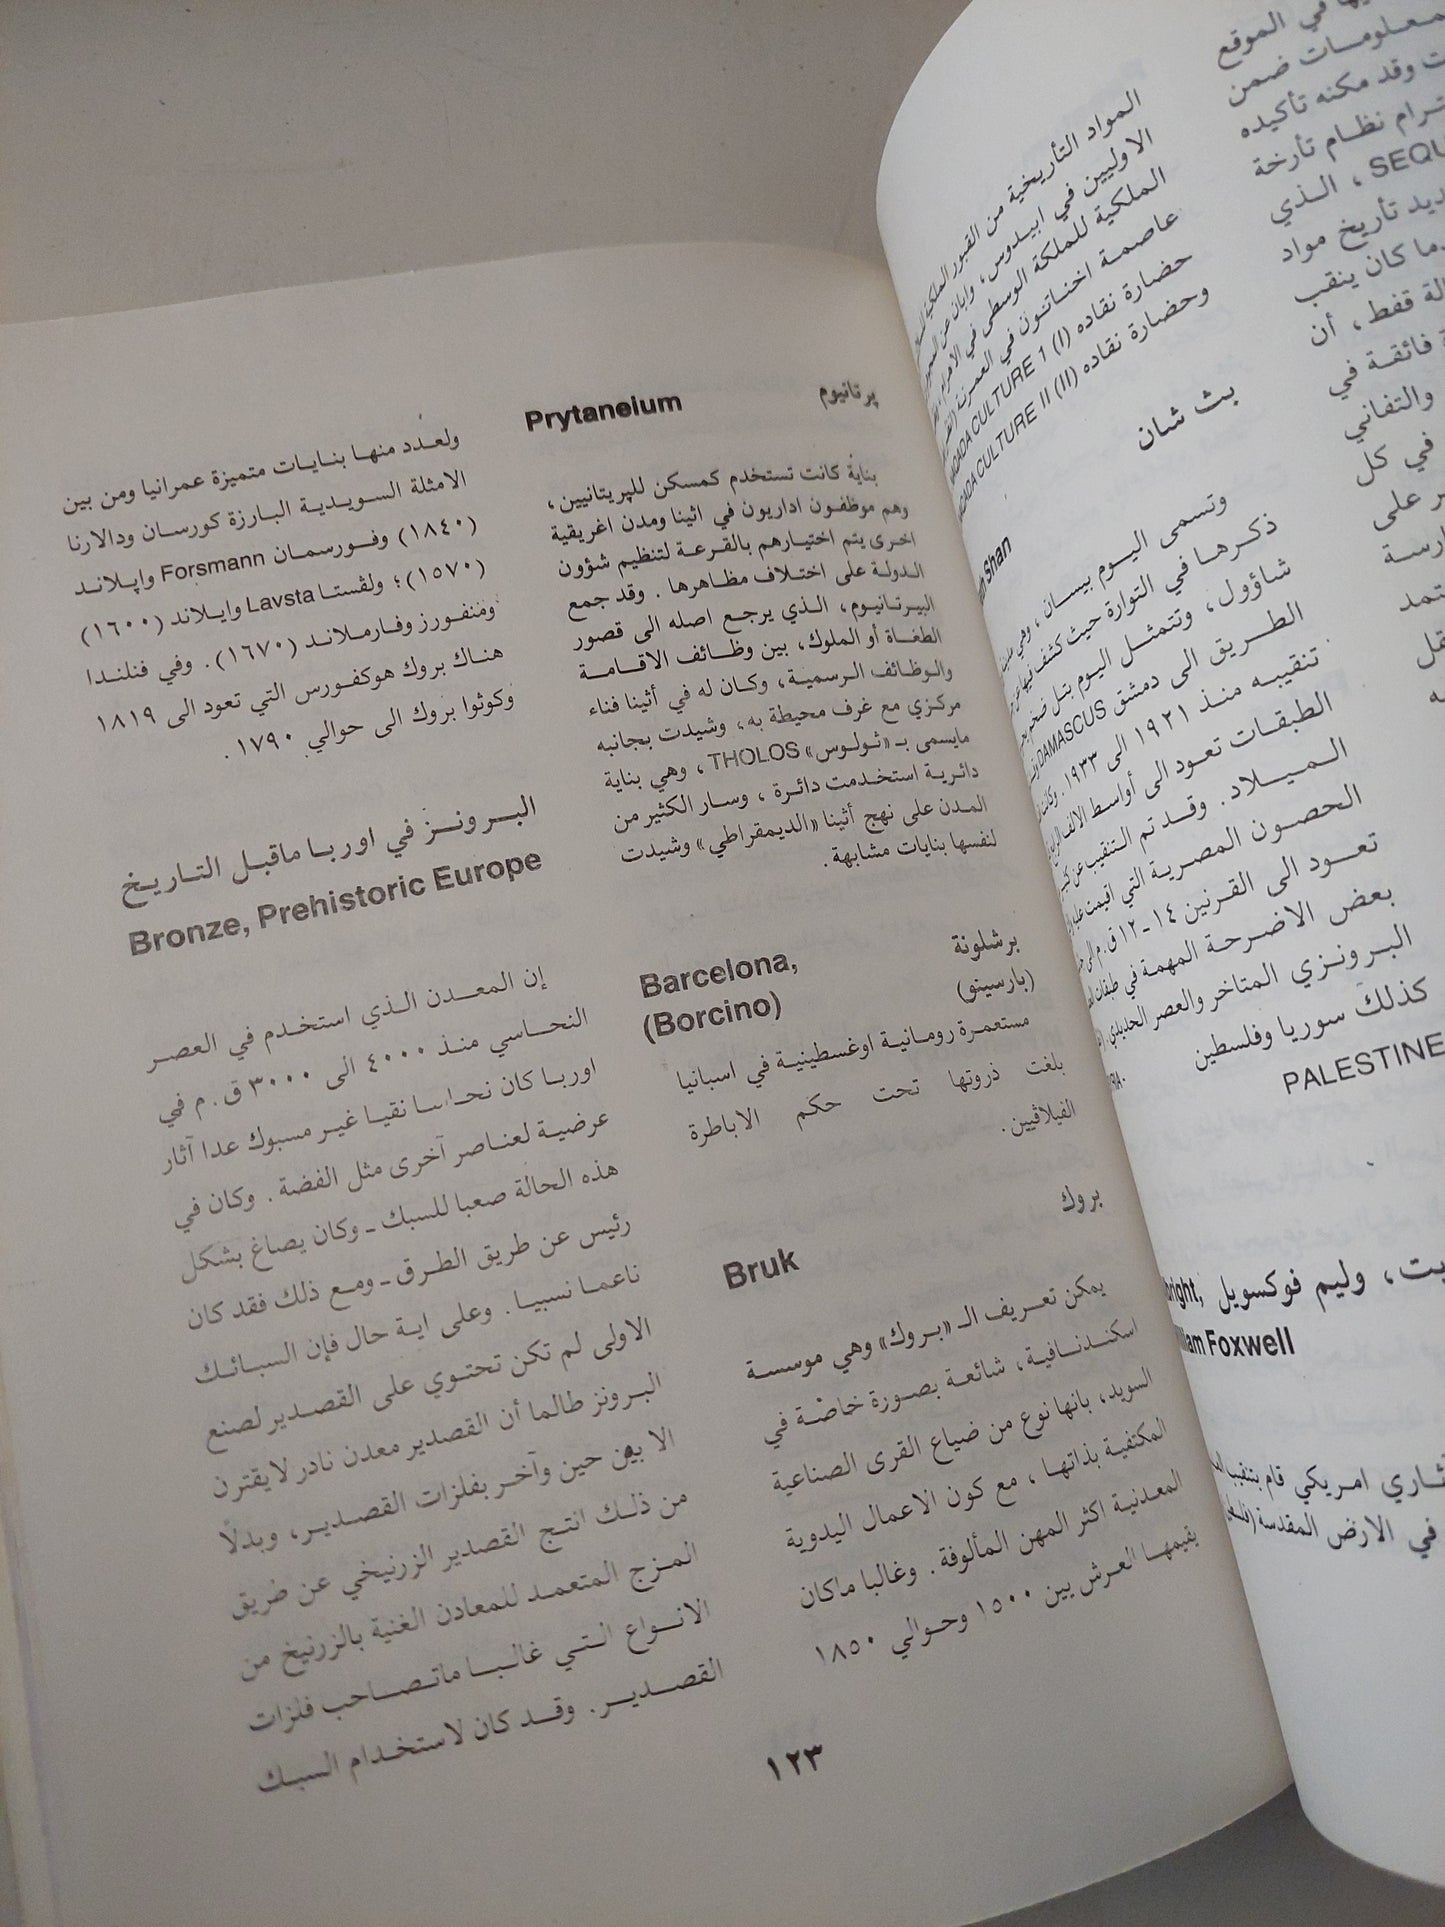 برتانيوم
Prytaneium
بناية كانت تستخدم كمسكن للپريتانيين،
وهم موظفون اداريون في اثينا ومدن اغريقية
اخرى يتم اختيارهم بالقرعة لتنظيم شؤون
الدولة على اختلاف مظاهرها . وقد جمع
البيرتانيوم، الذي يرجع اصله الى قصور
الطغاة أو الملوك، بين وظائف الاقامة
والوظائف الرسمية، وكان له في أثينا فناء
مركزي مع غرف محيطة به، وشيدت بجانبه
مايسمى بـ «ثولوس» THOLOS ، وهي بناية
دائرية استخدمت دائرة ، وسار الكثير من
المدن على نهج أثينا «الديمقراطي» وشيدت
لنفسها بنايات مشابهة .
برشلونة
Barcelona,
(بارسينو)
(Borcino)
مستعمرة رومانية اوغسطينية في اسبانيا
بلغت ذروتها تحت حكم الاباطرة
الفيلاڤيين .
بروك
Bruk
يمكن تعريف الـ «بروك» وهي موسسة
اسكندنافية، شائعة بصورة خاصّة في
السويد، بانها نوع من ضياع القرى الصناعية
المكتفية بذاتها ، مع كون الاعمال اليدوية
المعدنية اكثر المهن المألوفة . وغالبا ماكان
يقيمها العرش بين ١٥٠٠ وحوالي ١٨٥٠
ولعدد منها بنايات متميزة عمرانيا ومن بين
الامثلة السويدية البارزة كورسان ودالارنا
(١٨٤٠) وفورسمان Forsmann واپلاند
(١٥٧٠)؛ ولڤستا Lavsta وايلاند (١٦٠٠)
ومنفورز وفارملاند (١٦٧٠). وفي فنلندا
هناك بروك هوكفورس التي تعود الى ١٨١٩
وكوثوا بروك الى حوالي ١٧٩٠ .
البرونز في اوربا ماقبل التاريخ
Bronze, Prehistoric Europe
إن المعدن الذي استخدم في العصر
النحاسي منذ ٤٠٠٠ الى ٣٠٠٠ ق . م في
اوربا كان نحاسا نقيا غير مسبوك عدا آثار
عرضية لعناصر آخرى مثل الفضة . وكان في
هذه الحالة صعبا للسبك ـ وكان يصاغ بشكل
رئيس عن طريق الطرق ـ ومع ذلك فقد كان
ناعما نسبيا . وعلى اية حال فإن السبائك
الاولى لم تكن تحتوي على القصدير لصنع
البرونز طالما أن القصدير معدن نادر لايقترن
الا بين حين وآخر بفلزات القصدير، وبدلًا
من ذلك انتج القصدير الزرنيخي عن طريق
المزج المتعمد للمعادن الغنية بالزرنيخ من
الانواع التي غالبا ماتصاحب فلزات
القصدير. وقد كان لاستخدام السبك
١٢٣
المواد التأريخية من القبور الملكية
الاوليين في ابيدوس، وابان عن
الملكية للملكة الوسطى في
عاصمة اخناتون في العمرنة
حضارة نقاده (I) CULTURE 1
وحضارة نقاده (II) CULTURE II
بث شان
Shan
وتسمى اليوم بيسان ، وهي
ذكرها في التوارة حيث كشف فيها عن
شاؤول، وتتمثل اليوم بتل ضخم
الطريق الى دمشق DAMASCUS
تنقيبه منذ ١٩٢١ الى ١٩٣٣ .
الطبقات تعود الى أواسط الالف
الميلاد . وقد تم التنقيب عن
الحصون المصرية التي اقيمت
تعود الى القرنين ١٤ـ١٢ ق.م
بعض الاضرحة المهمة في طبقات
البرونزي المتاخر والعصر الحديدي
كذلك سوريا وفلسطين
PALESTINE
وليم فوكسويل
Foxwell
امريكي قام بتنقيب
في الارض المقدسة
في الموقع
ضمن
وقد مكنه تأكيده
نظام تأرخة
، الذي
تأريخ مواد
كان ينقب
قفط، أن
فائقة في
والتفاني
في كل
على